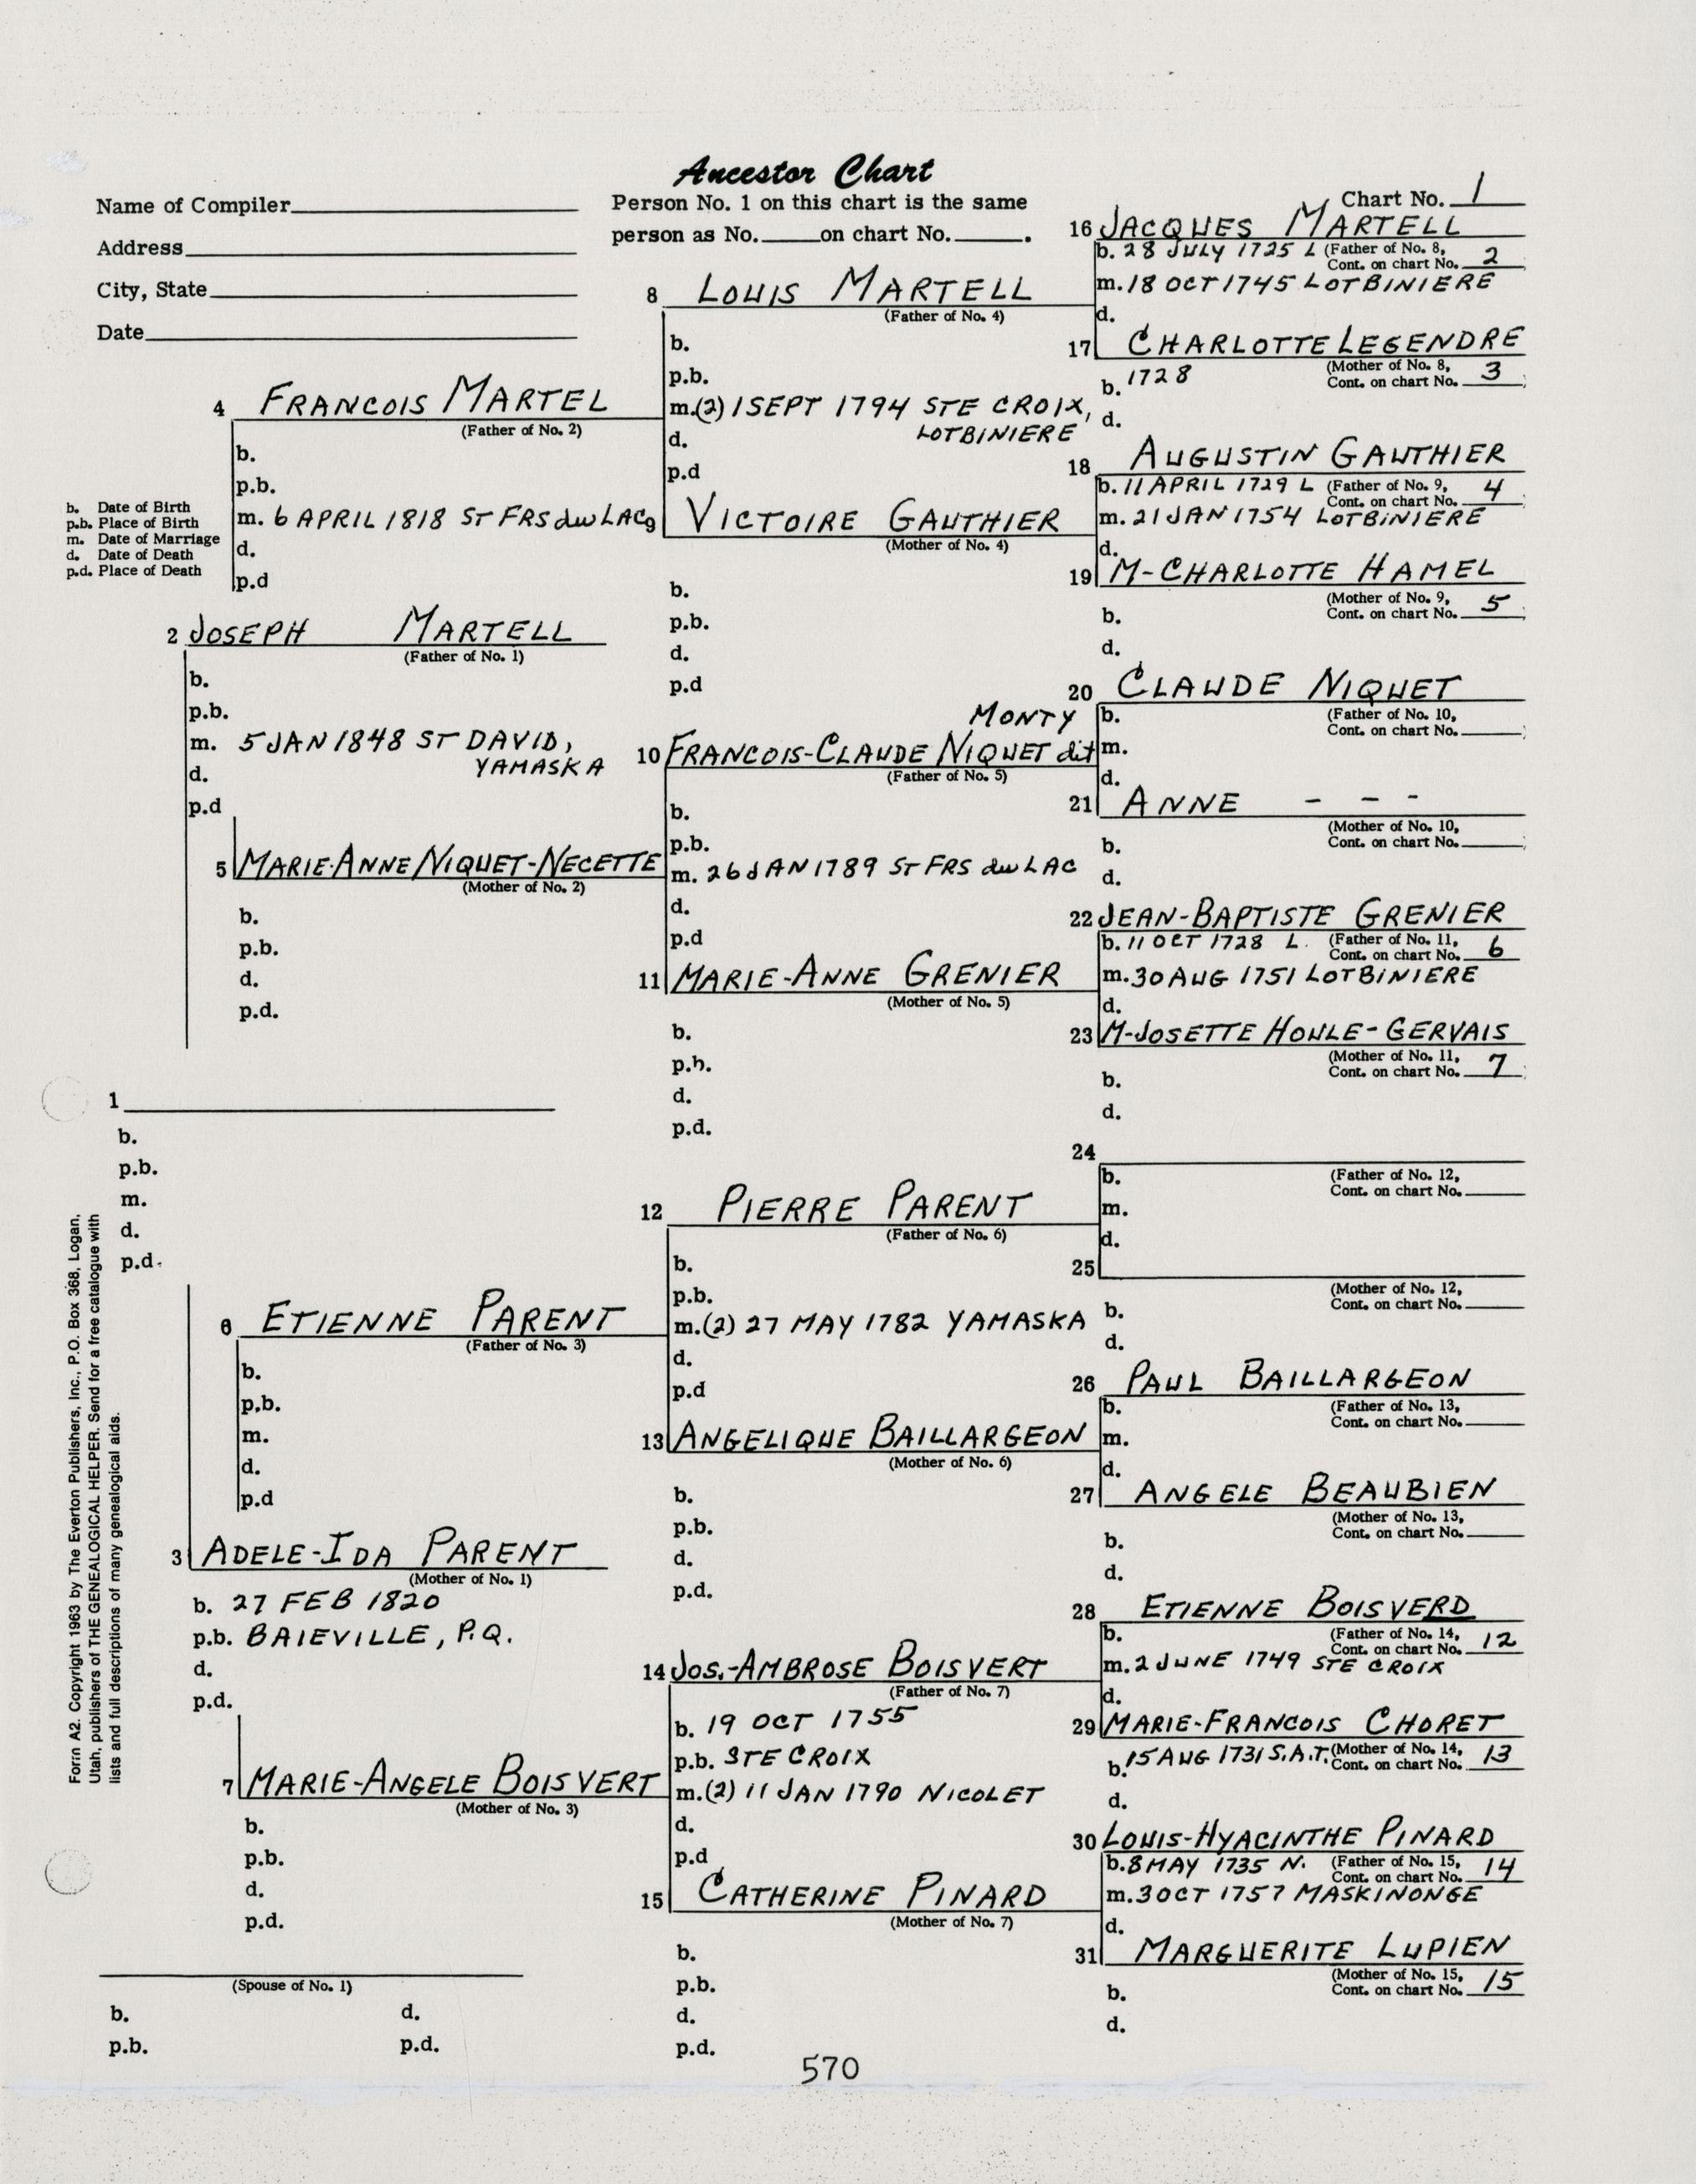 Ancestor Chart
Name of Compiler
Address
City, State
Date
Person No. 1 on this chart is the same
person as No. on chart No. .
Chart No. 1
b. Date of Birth
p.b. Place of Birth
m. Date of Marriage
d. Date of Death
p.d. Place of Death
1
b.
p.b.
m.
d.
p.d.
2 JOSEPH MARTELL
(Father of No. 1)
b.
p.b.
m. 5 JAN 1848 ST DAVID,
YAMASKA
d.
p.d
4 FRANCOIS MARTEL
(Father of No. 2)
b.
p.b.
m. 6 APRIL 1818 ST FRS du LAC
d.
p.d
5 MARIE-ANNE NIQUET-NECETTE
(Mother of No. 2)
b.
p.b.
d.
p.d.
6 ETIENNE PARENT
(Father of No. 3)
b.
p.b.
m.
d.
p.d
3 ADELE-IDA PARENT
(Mother of No. 1)
b. 27 FEB 1820
p.b. BAIEVILLE, P.Q.
d.
p.d.
7 MARIE-ANGELE BOISVERT
(Mother of No. 3)
b.
p.b.
d.
p.d.
(Spouse of No. 1)
b. d.
p.b. p.d.
8 LOUIS MARTELL
(Father of No. 4)
b.
p.b.
m.(2) 1 SEPT 1794 STE CROIX,
LOTBINIERE
d.
p.d
9 VICTOIRE GAUTHIER
(Mother of No. 4)
b.
p.b.
d.
p.d
MONTY
10 FRANCOIS-CLAUDE NIQUET dit
(Father of No. 5)
b.
p.b.
m. 26 JAN 1789 ST FRS du LAC
d.
p.d
11 MARIE-ANNE GRENIER
(Mother of No. 5)
b.
p.b.
d.
p.d.
12 PIERRE PARENT
(Father of No. 6)
b.
p.b.
m.(2) 27 MAY 1782 YAMASKA
d.
p.d
13 ANGELIQUE BAILLARGEON
(Mother of No. 6)
b.
p.b.
d.
p.d.
14 JOS.-AMBROSE BOISVERT
(Father of No. 7)
b. 19 OCT 1755
p.b. STE CROIX
m.(2) 11 JAN 1790 NICOLET
d.
p.d
15 CATHERINE PINARD
(Mother of No. 7)
b.
p.b.
d.
p.d.
16 JACQUES MARTELL
b. 28 JULY 1725 L (Father of No. 8,
Cont. on chart No. 2
m. 18 OCT 1745 LOTBINIERE
d.
17 CHARLOTTE LEGENDRE
(Mother of No. 8,
b. 1728 Cont. on chart No. 3
d.
18 AUGUSTIN GAUTHIER
b. 11 APRIL 1729 L (Father of No. 9,
Cont. on chart No. 4
m. 21 JAN 1754 LOTBINIERE
d.
19 M-CHARLOTTE HAMEL
(Mother of No. 9,
Cont. on chart No. 5
b.
d.
20 CLAUDE NIQUET
b. (Father of No. 10,
Cont. on chart No.
m.
d.
21 ANNE - - -
(Mother of No. 10,
Cont. on chart No.
b.
d.
22 JEAN-BAPTISTE GRENIER
b. 11 OCT 1728 L. (Father of No. 11,
Cont. on chart No. 6
m. 30 AUG 1751 LOTBINIERE
d.
23 M-JOSETTE HOULE-GERVAIS
(Mother of No. 11,
Cont. on chart No. 7
b.
d.
24
b. (Father of No. 12,
Cont. on chart No.
m.
d.
25
(Mother of No. 12,
Cont. on chart No.
b.
d.
26 PAUL BAILLARGEON
b. (Father of No. 13,
Cont. on chart No.
m.
d.
27 ANGELE BEAUBIEN
(Mother of No. 13,
Cont. on chart No.
b.
d.
28 ETIENNE BOISVERD
b. (Father of No. 14,
Cont. on chart No. 12
m. 2 JUNE 1749 STE CROIX
d.
29 MARIE-FRANCOIS CHORET
b. 15 AUG 1731 S.A.T. (Mother of No. 14,
Cont. on chart No. 13
d.
30 LOUIS-HYACINTHE PINARD
b. 8 MAY 1735 N. (Father of No. 15,
Cont. on chart No. 14
m. 3 OCT 1757 MASKINONGE
d.
31 MARGUERITE LUPIEN
(Mother of No. 15,
Cont. on chart No. 15
b.
d.
Form A2. Copyright 1963 by The Everton Publishers, Inc., P.O. Box 368, Logan,
Utah, publishers of THE GENEALOGICAL HELPER. Send for a free catalogue with
lists and full descriptions of many genealogical aids.
570